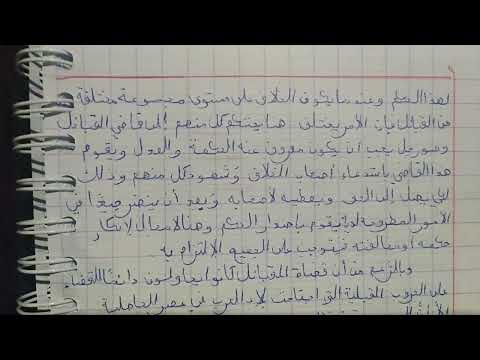 لهذا الحكم وعندما يكون الخلاف على مستوى مجموعة مختلفة
من القبائل فإن الأمر يختلف هنا يحتكم كل منهم إلى قاضي القبائل
وهو رجل يجب أن يكون معروف عنه الحكمة والعدل ويقوم
هذا القاضي باستدعاء أصحاب الخلاف وشهود كل منهم وذلك
لكي يصل إلى الحق ويعطيه لأصحابه وبعد أن ينظر جيدا في
الأمور المطروحة لديه يقوم بإصدار الحكم وهنا لا مجال لإنكار
حكمه أو مخالفته فيتوجب على الجميع الإلتزام به
وبالرغم من أن قضاة القبائل كانوا يحاولون دائما القضاء
على الحروب القبلية التي اجتاحت بلاد العرب في عصر الجاهلية